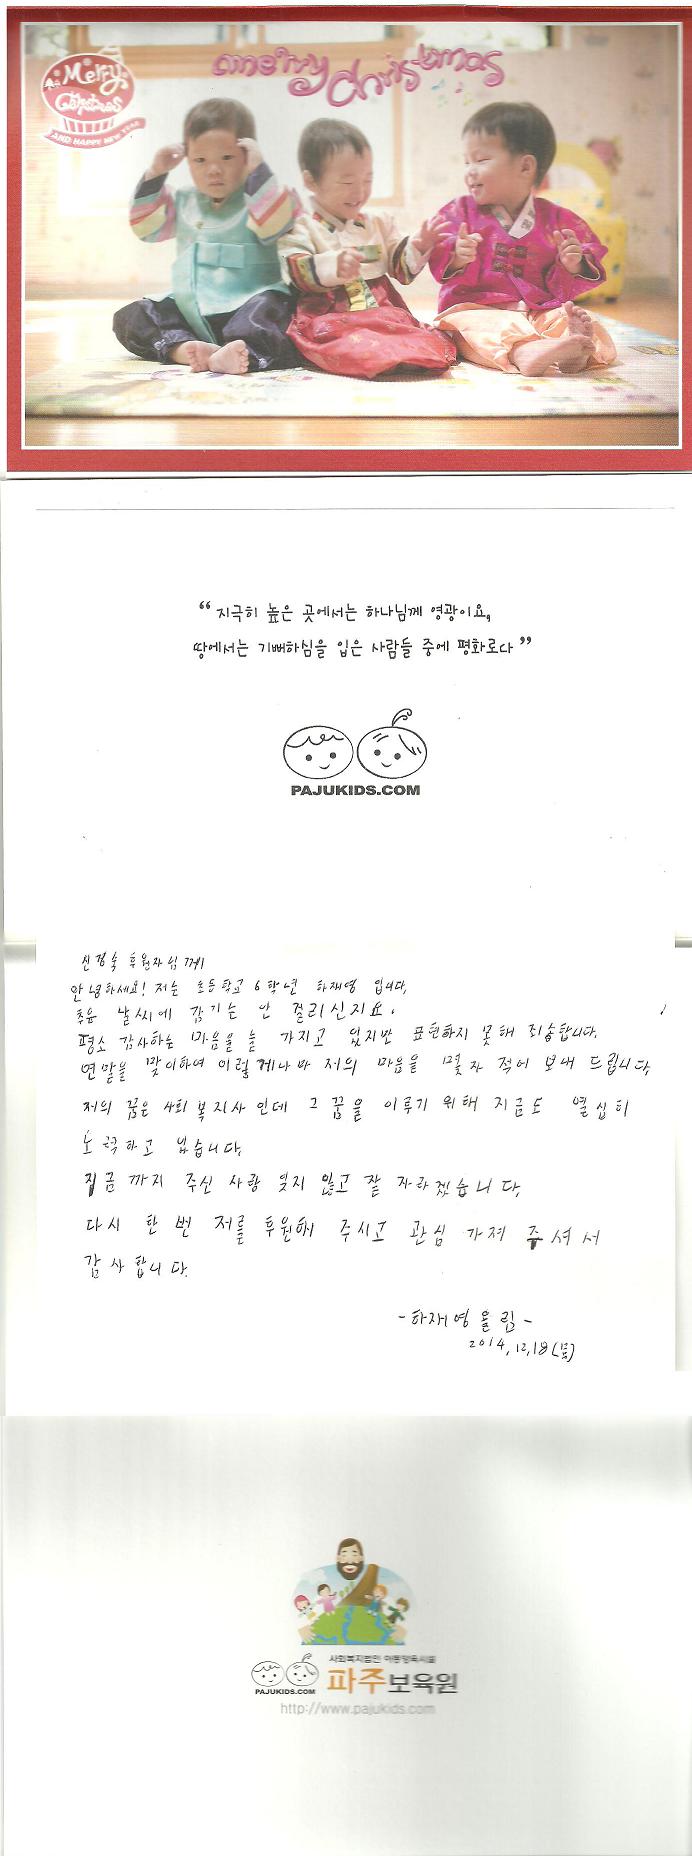 Merry
Christmas
AND HAPPY NEW YEAR
merry christmas
“지극히 높은 곳에서는 하나님께 영광이요,
땅에서는 기뻐하심을 입은 사람들 중에 평화로다”
PAJUKIDS.COM
신경숙 후원자님께
안녕하세요! 저는 초등학교 6학년 하재영 입니다.
추운 날씨에 감기는 안 걸리신지요.
평소 감사하는 마음을 늘 가지고 있지만 표현하지 못해 죄송합니다.
연말을 맞이하여 이렇게나마 저의 마음을 몇자 적어 보내 드립니다.
저의 꿈은 사회복지사 인데 그 꿈을 이루기 위해 지금도 열심히
노력하고 있습니다.
지금 까지 주신 사랑 잊지 않고 잘 자라겠습니다.
다시 한 번 저를 후원해 주시고 관심 가져 주셔서
감사합니다.
-하재영 올림-
2014.12.18(목)
사회복지법인 아동양육시설
PAJUKIDS.COM 파주보육원
http://www.pajukids.com